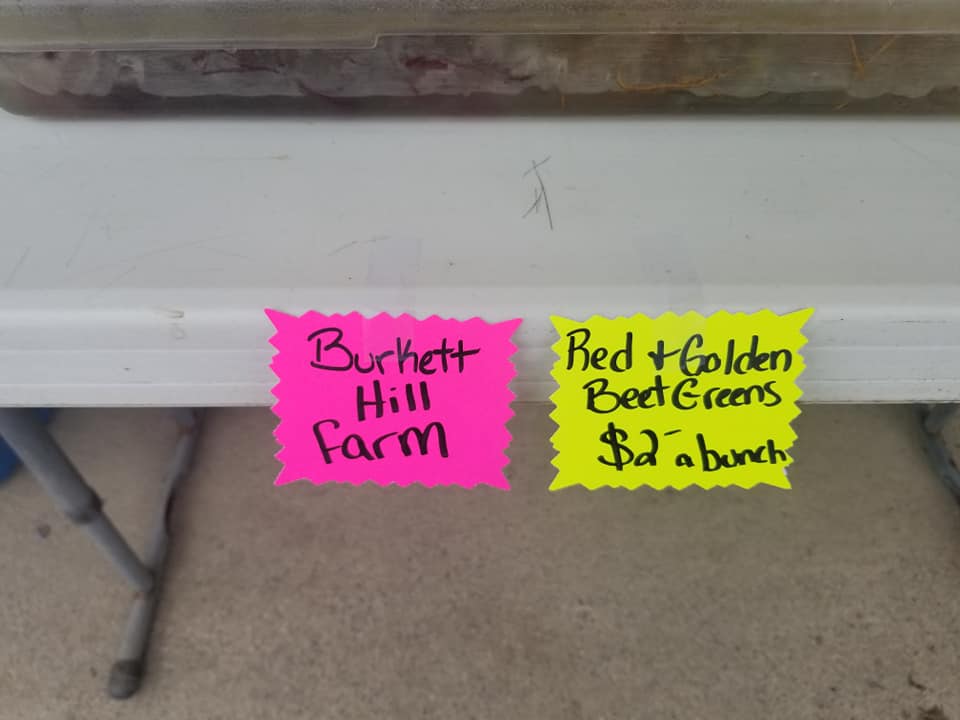 Burkett
Hill
Farm
Red + Golden
Beet Greens
$2- a bunch